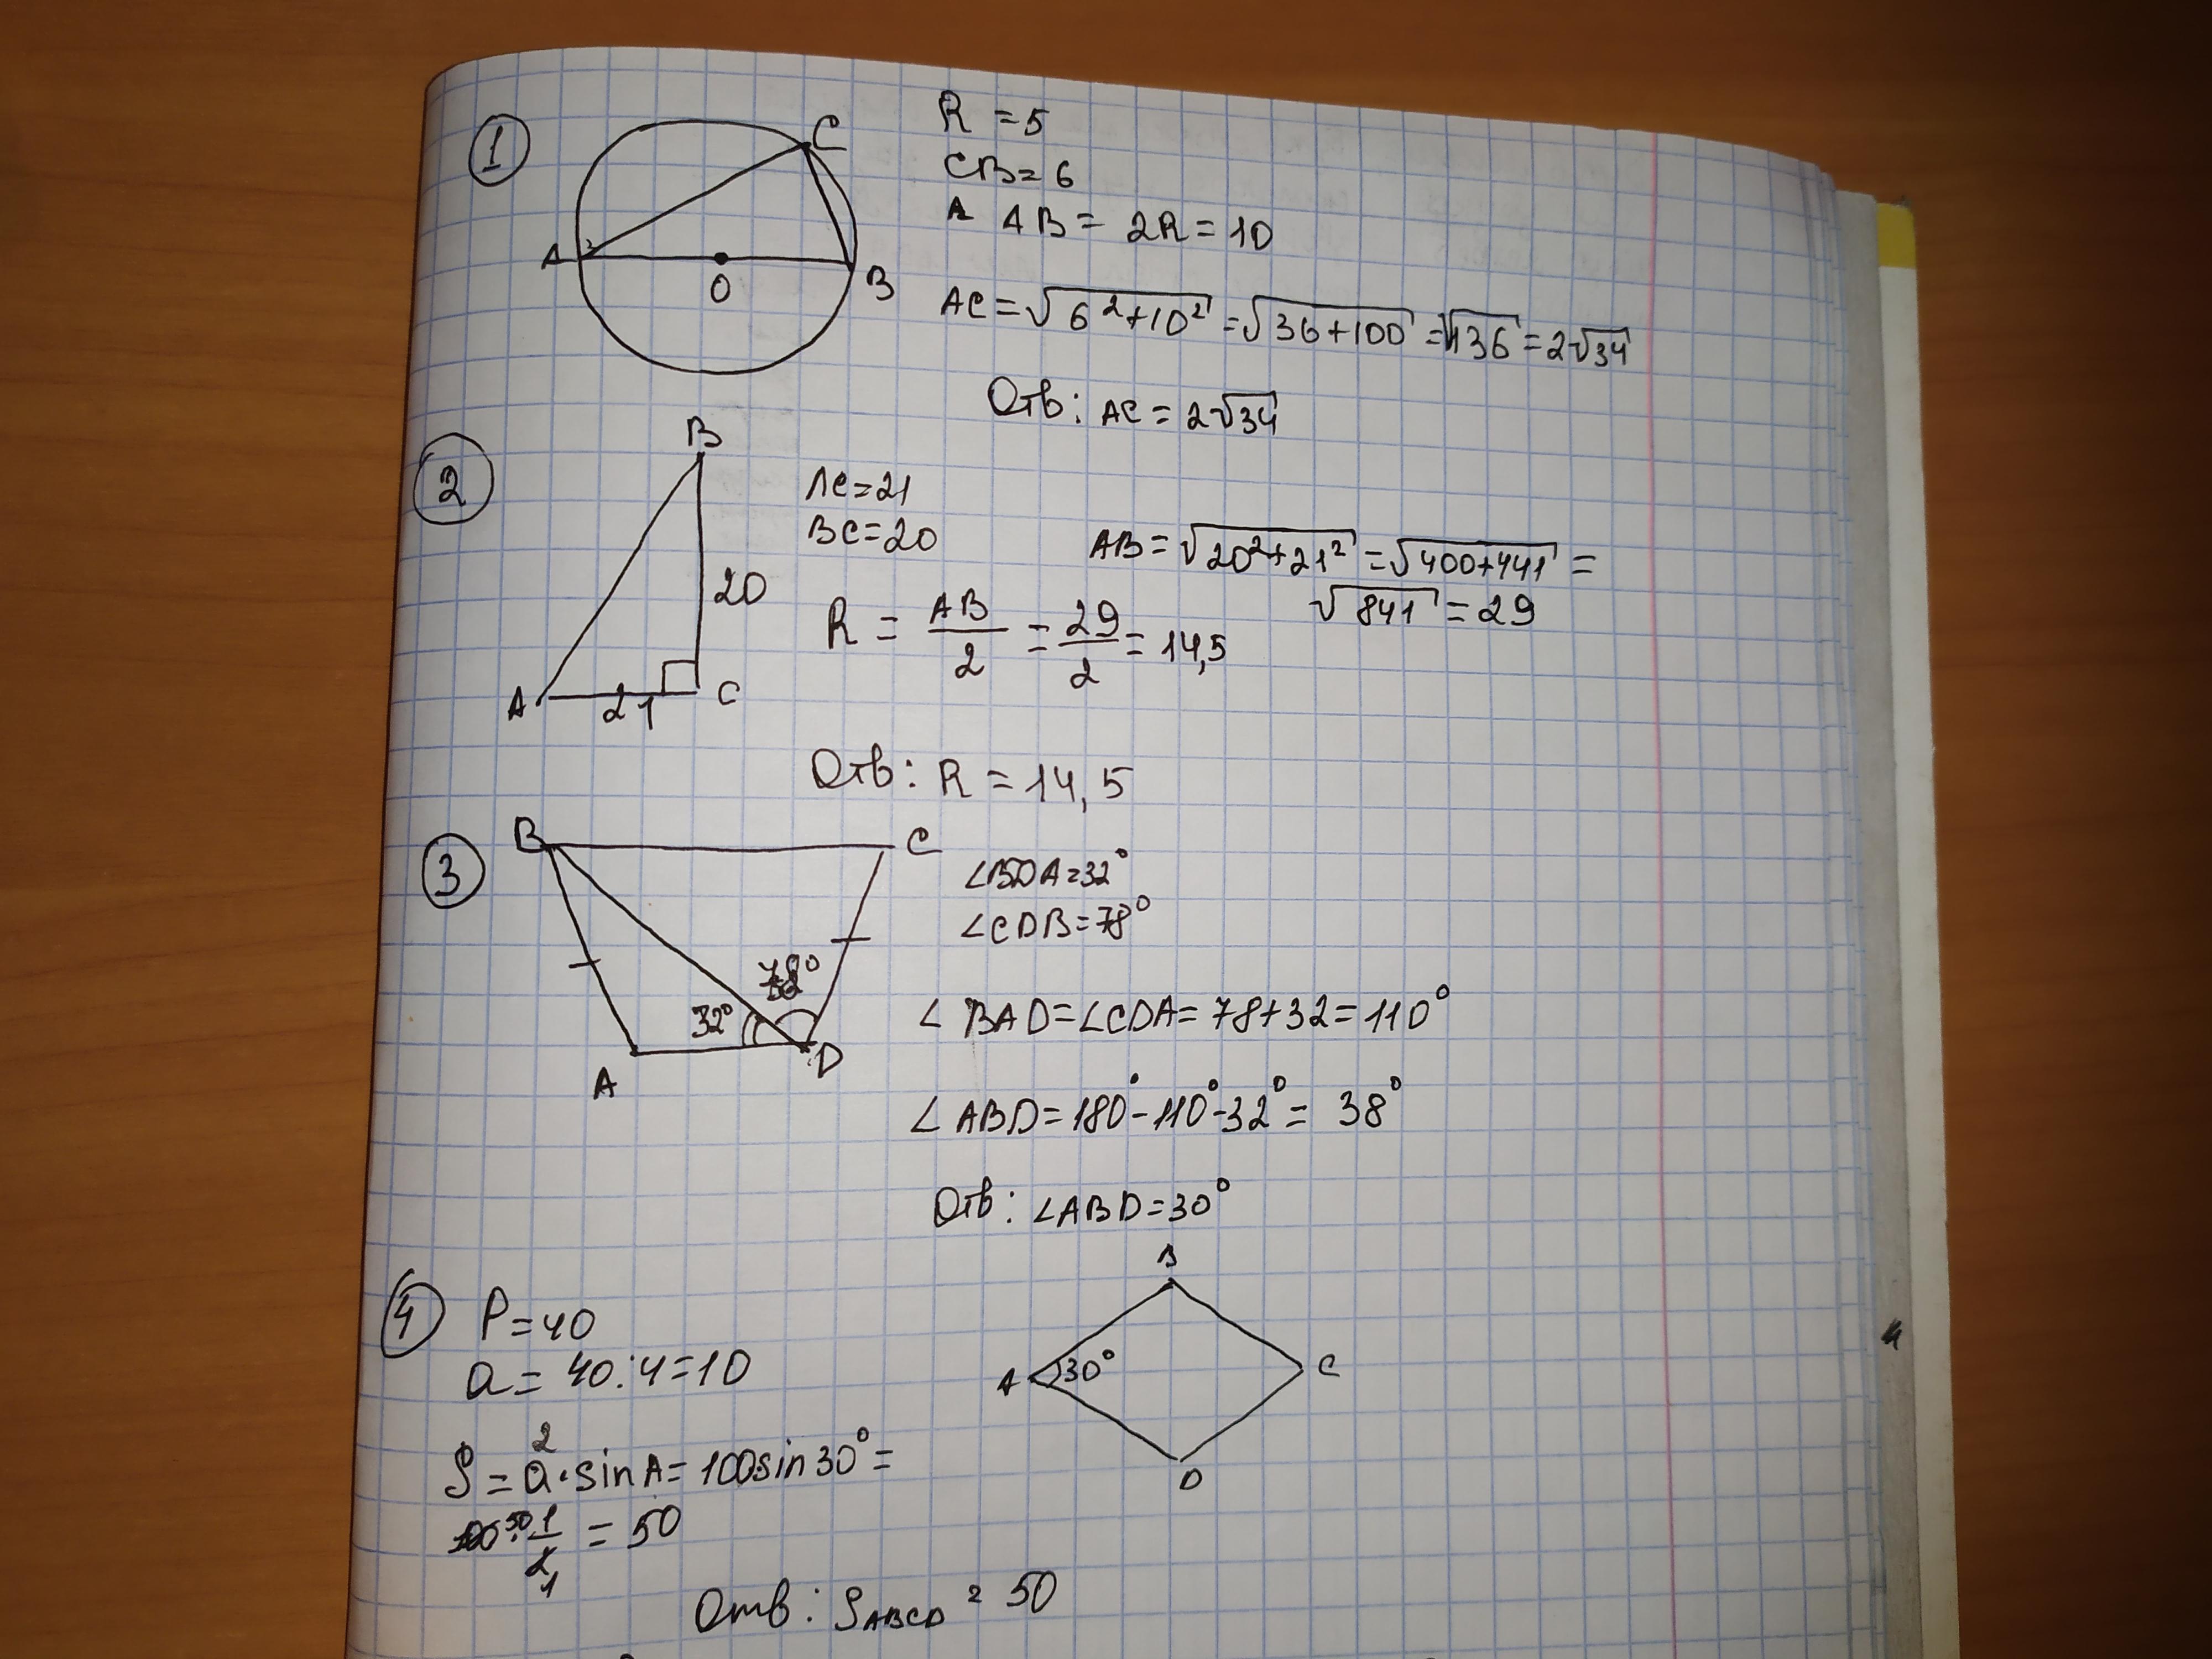 1
C
A
O
B
R = 5
CB = 6
A AB = 2R = 10
AC = √6²+10² = √36+100 = √136 = 2√34
Отв: AC = 2√34
2
B
20
A
21
C
AC = 21
BC = 20
AB = √20²+21² = √400+441 =
√841 = 29
R = AB/2 = 29/2 = 14,5
Отв: R = 14,5
3
B
C
78°
32°
A
D
∠BDA = 32°
∠CDB = 78°
∠BAD = ∠CDA = 78+32 = 110°
∠ABD = 180°-110°-32° = 38°
Отв: ∠ABD = 30°
4
P = 40
a = 40:4 = 10
B
A
30°
C
D
S = a²·sin A = 100sin30° =
100 50 · 1/2 1 = 50
Отв: S ABCD = 50